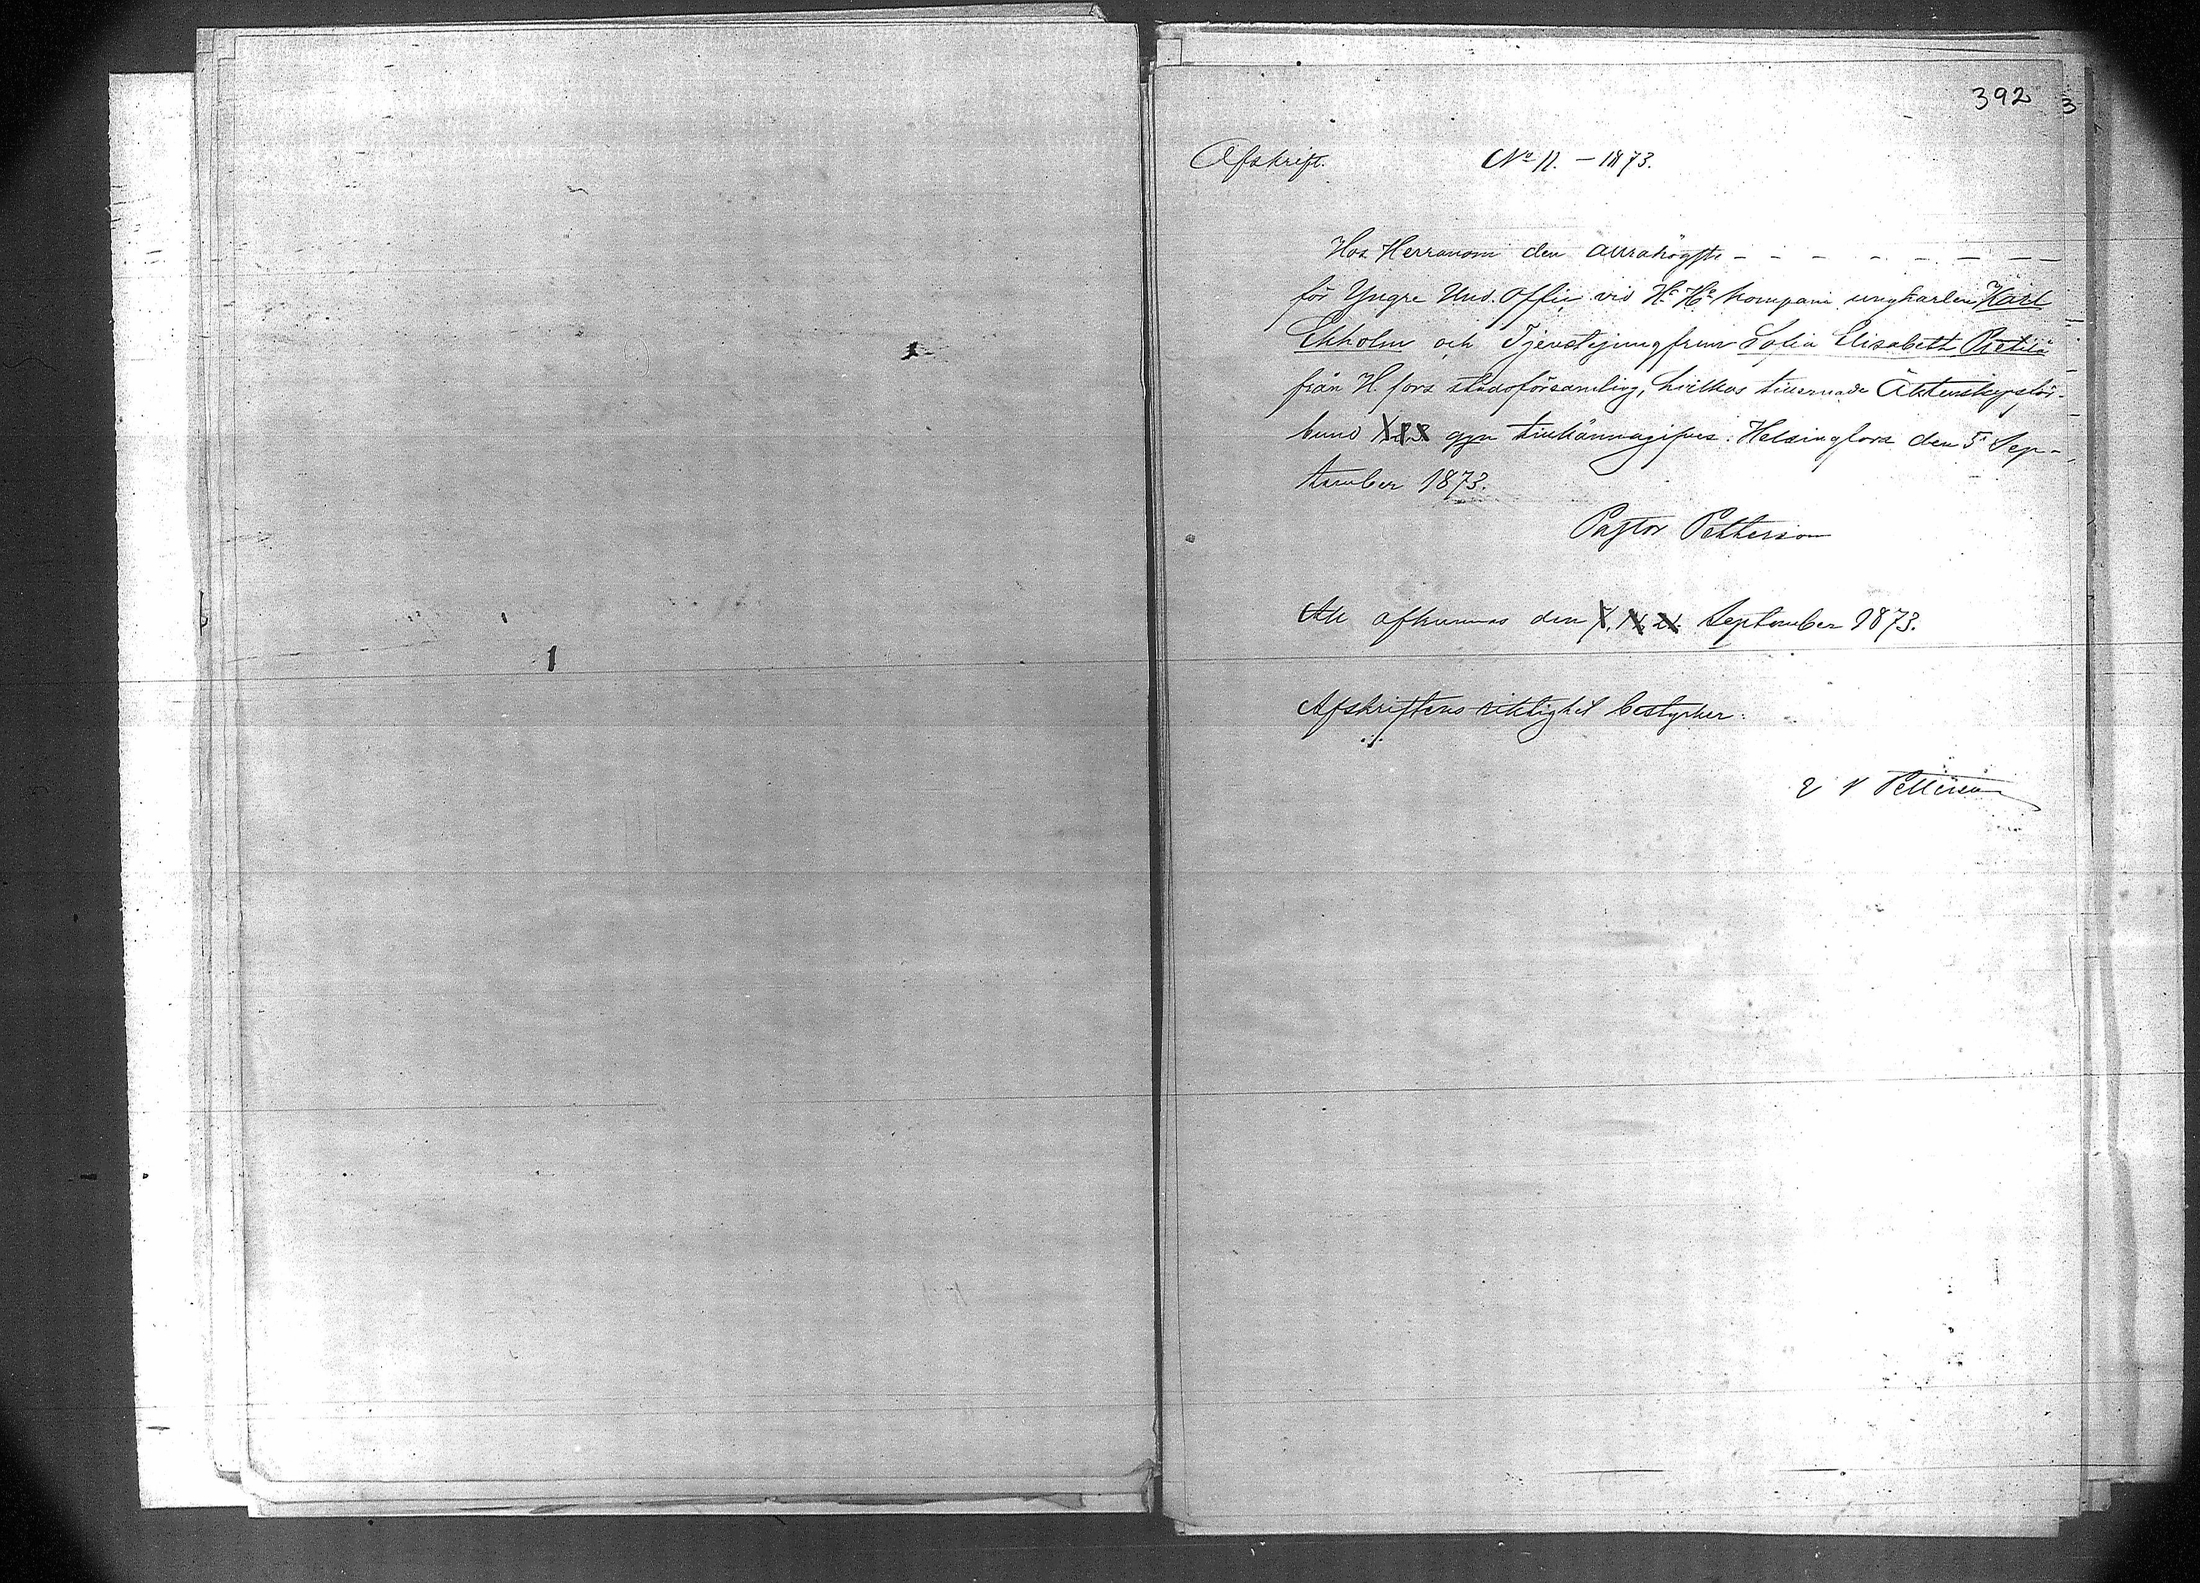 392
3
Afskrift. No 11. – 1873.
Hos Herranom den allrahögste – – – – – – – –
för Yngre Und. Offic. vid H:s H:s kompani ungkarlen Karl
Ekholm och Tjenstejungfrun Sofia Elisabeth
från H. fors stadsförsamling, hvilkas tillernade Äktenskapsför-
bund 1, 2, 3 ggn tillkännagifves. Helsingfors den 5 Sep-
tember 1873.
Pastor Petterson
Att afkunnas den 7, 14, 21 September 1873.
Afskriftens riktighet bestyrker:
Petterson